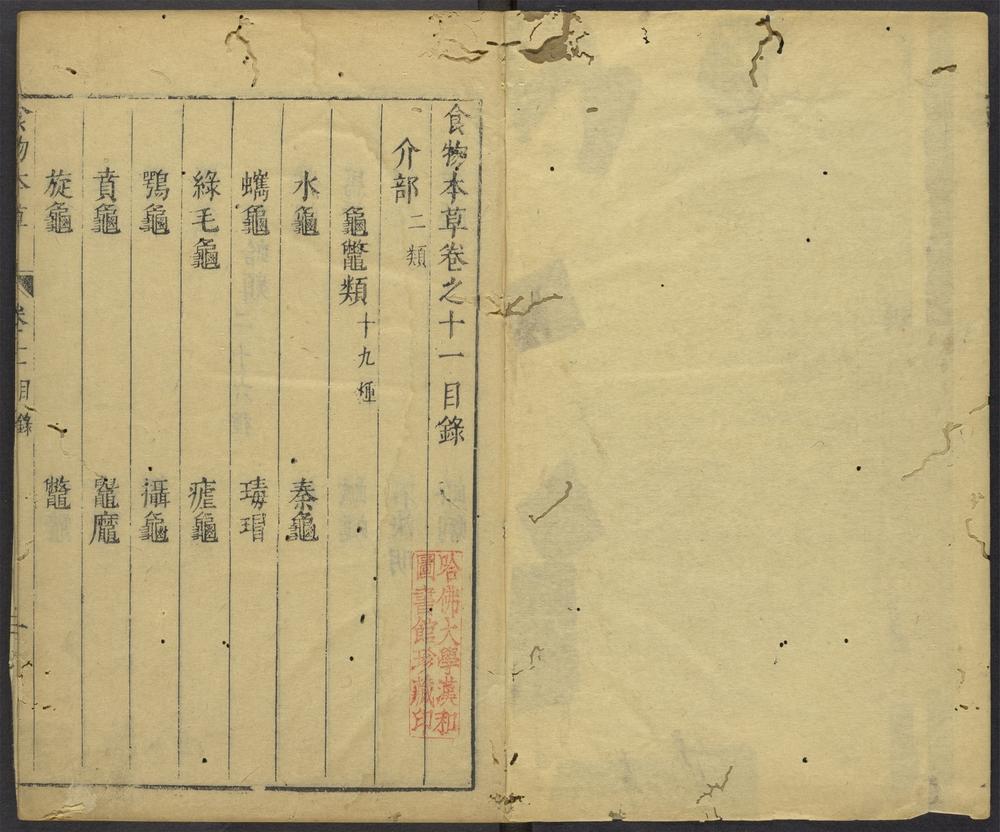 食物本草卷之十一目錄
介部二類
龜鼈類十九種
水龜 秦龜
蠵龜 瑇瑁
綠毛龜 瘧龜
鶚龜 攝龜
賁龜 黿
旋龜 鼈
食物本草 卷十一目錄 一
哈佛大學漢和
圖書館珍藏印